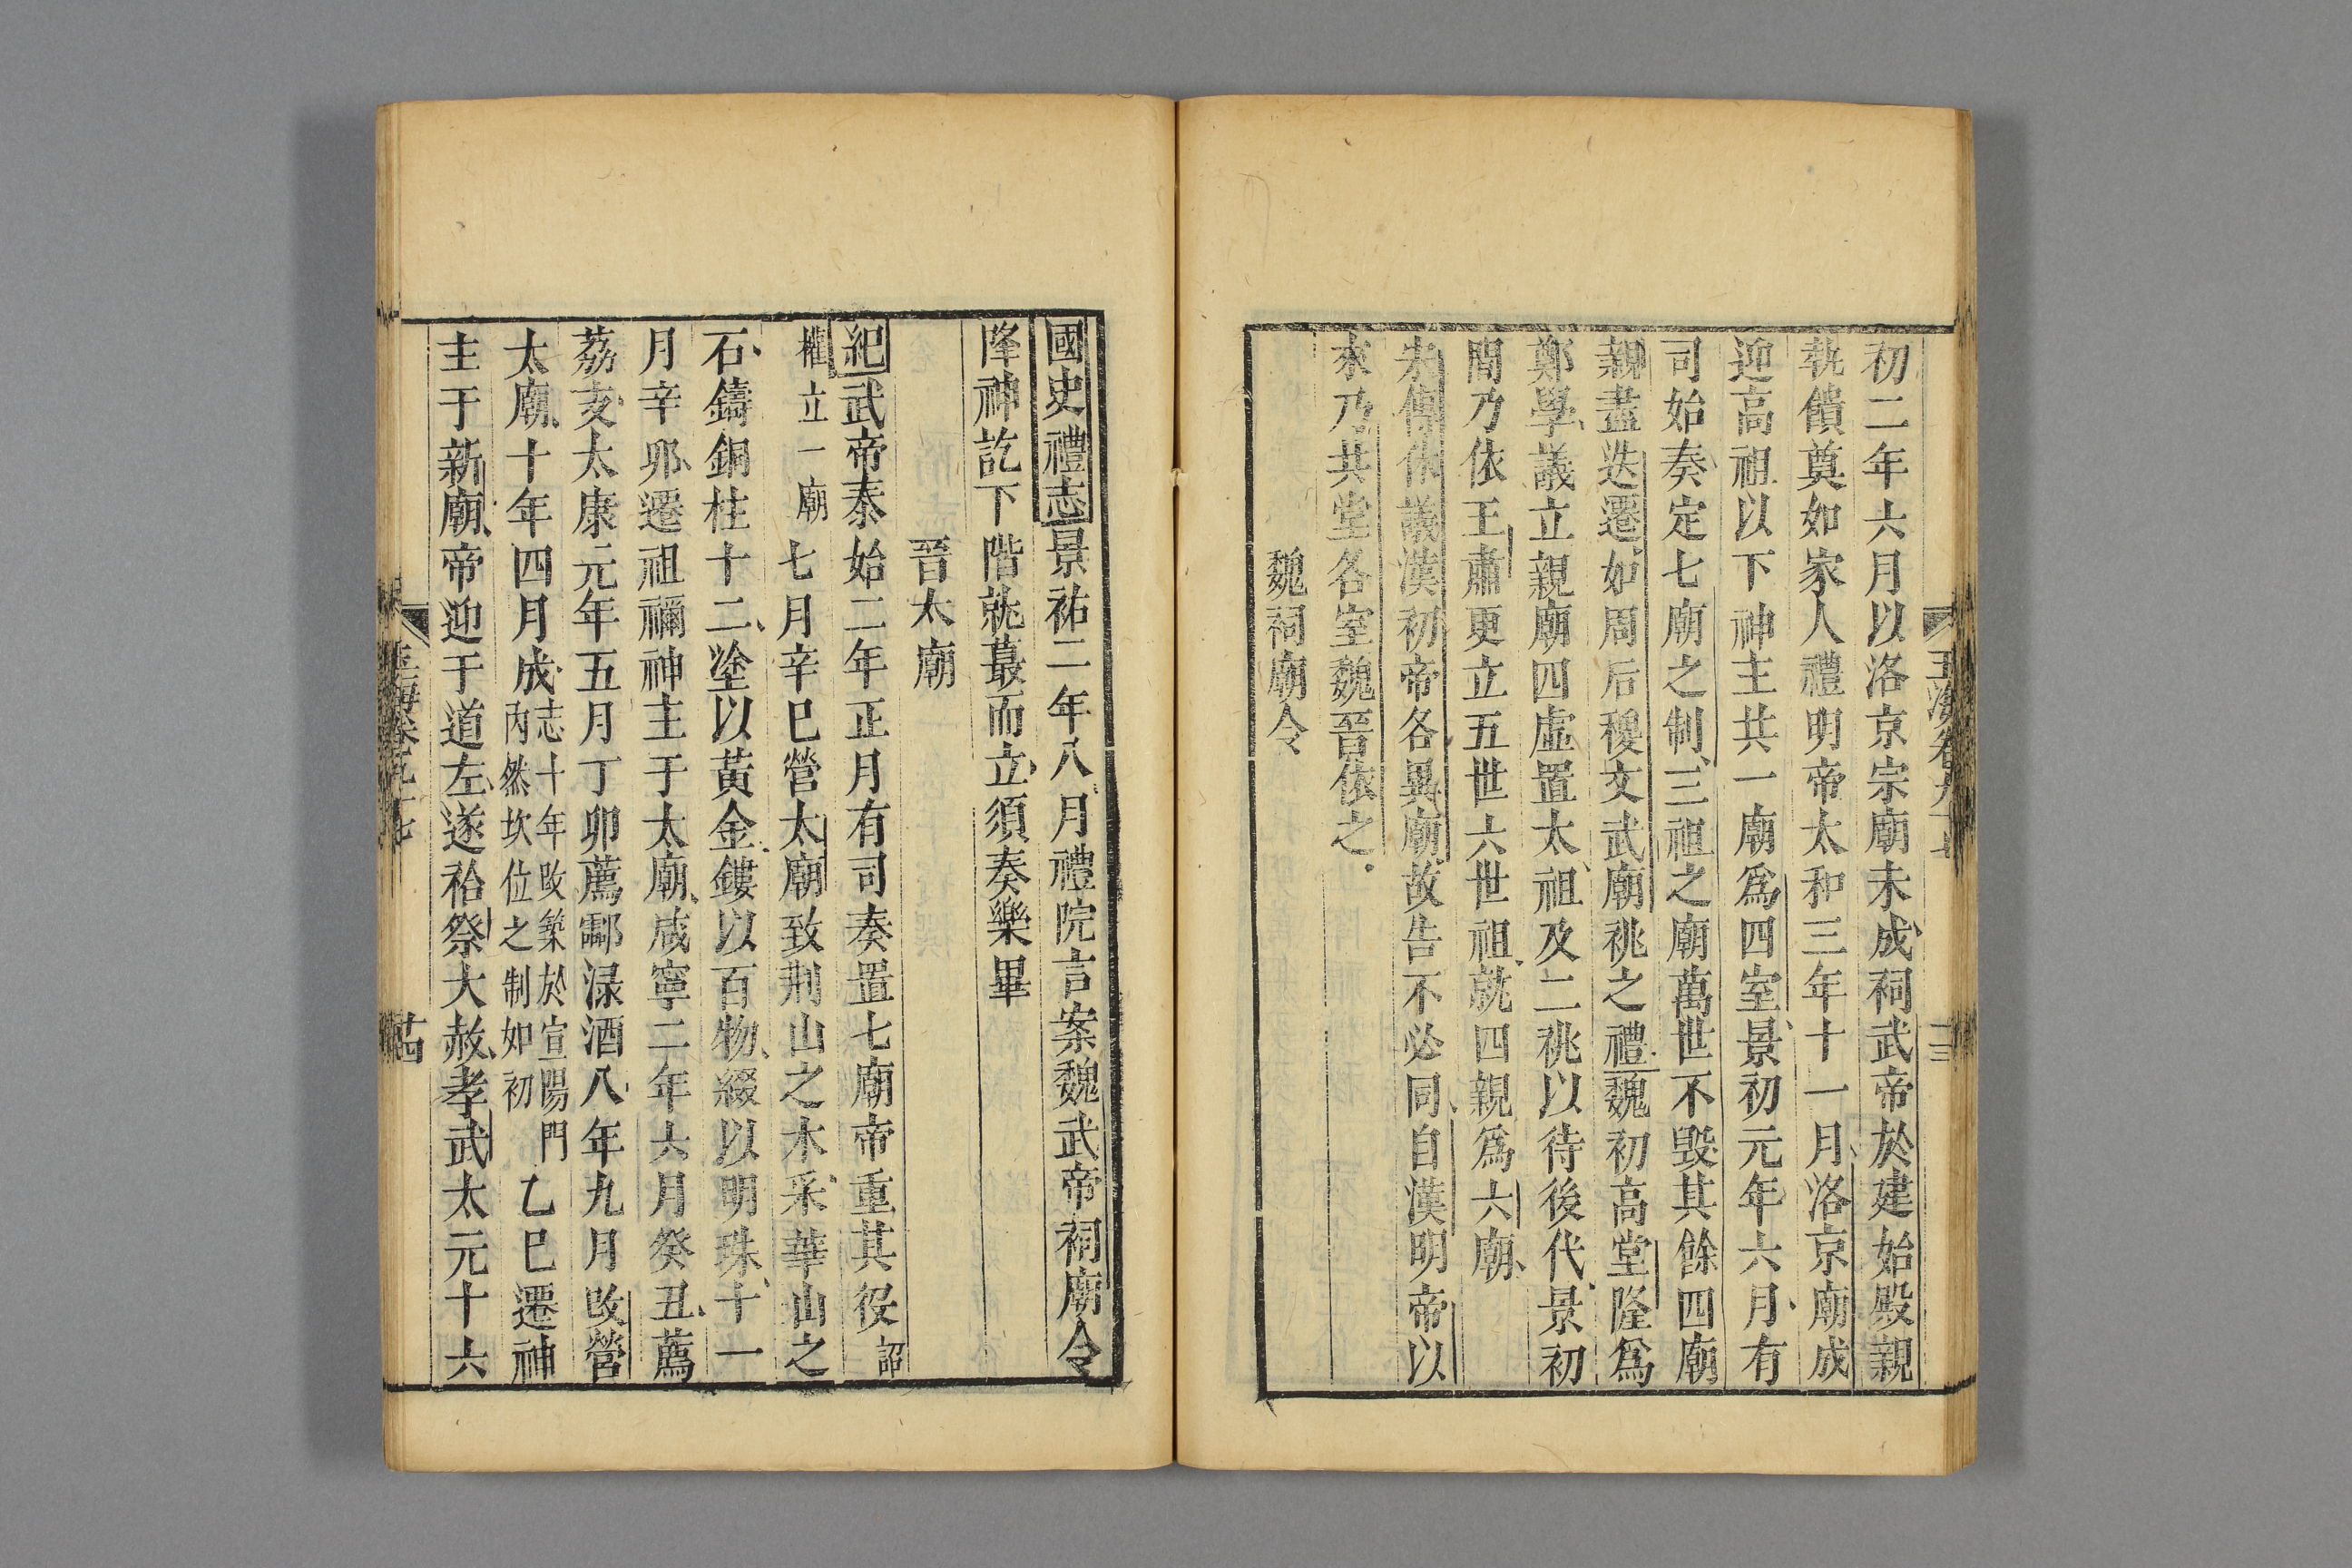 玉海卷九十七
十三
初二年六月以洛京宗廟未成祠武帝於建始殿親
執饋奠如家人禮明帝太和三年十一月洛京廟成
迎高祖以下神主共一廟爲四室景初元年六月有
司始奏定七廟之制三祖之廟萬世不毀其餘四廟
親盡迭遷如周后稷文武廟祧之禮魏初高堂隆爲
鄭學議立親廟四虛置太祖及二祧以待後代景初
間乃依王肅更立五世六世祖就四親爲六廟
朱傳依議漢初帝各異廟故告不必同自漢明帝以
來乃共堂各室魏晉依之
魏祠廟令
國史禮志景祐二年八月禮院言案魏武帝祠廟令
降神訖下階就幕而立須奏樂畢
晉太廟
紀武帝泰始二年正月有司奏置七廟帝重其役詔
權立一廟七月辛巳營太廟致荆山之木采華山之
石鑄銅柱十二塗以黃金鏤以百物綴以明珠十一
月辛卯遷祖禰神主于太廟咸寧二年六月癸丑薦
荔支太康元年五月丁卯薦酃淥酒八年九月改營
太廟十年四月成志十年改築於宣陽門內然坎位之制如初乙巳遷神
主于新廟帝迎于道左遂祫祭大赦孝武太元十六
玉海卷九十七
十四